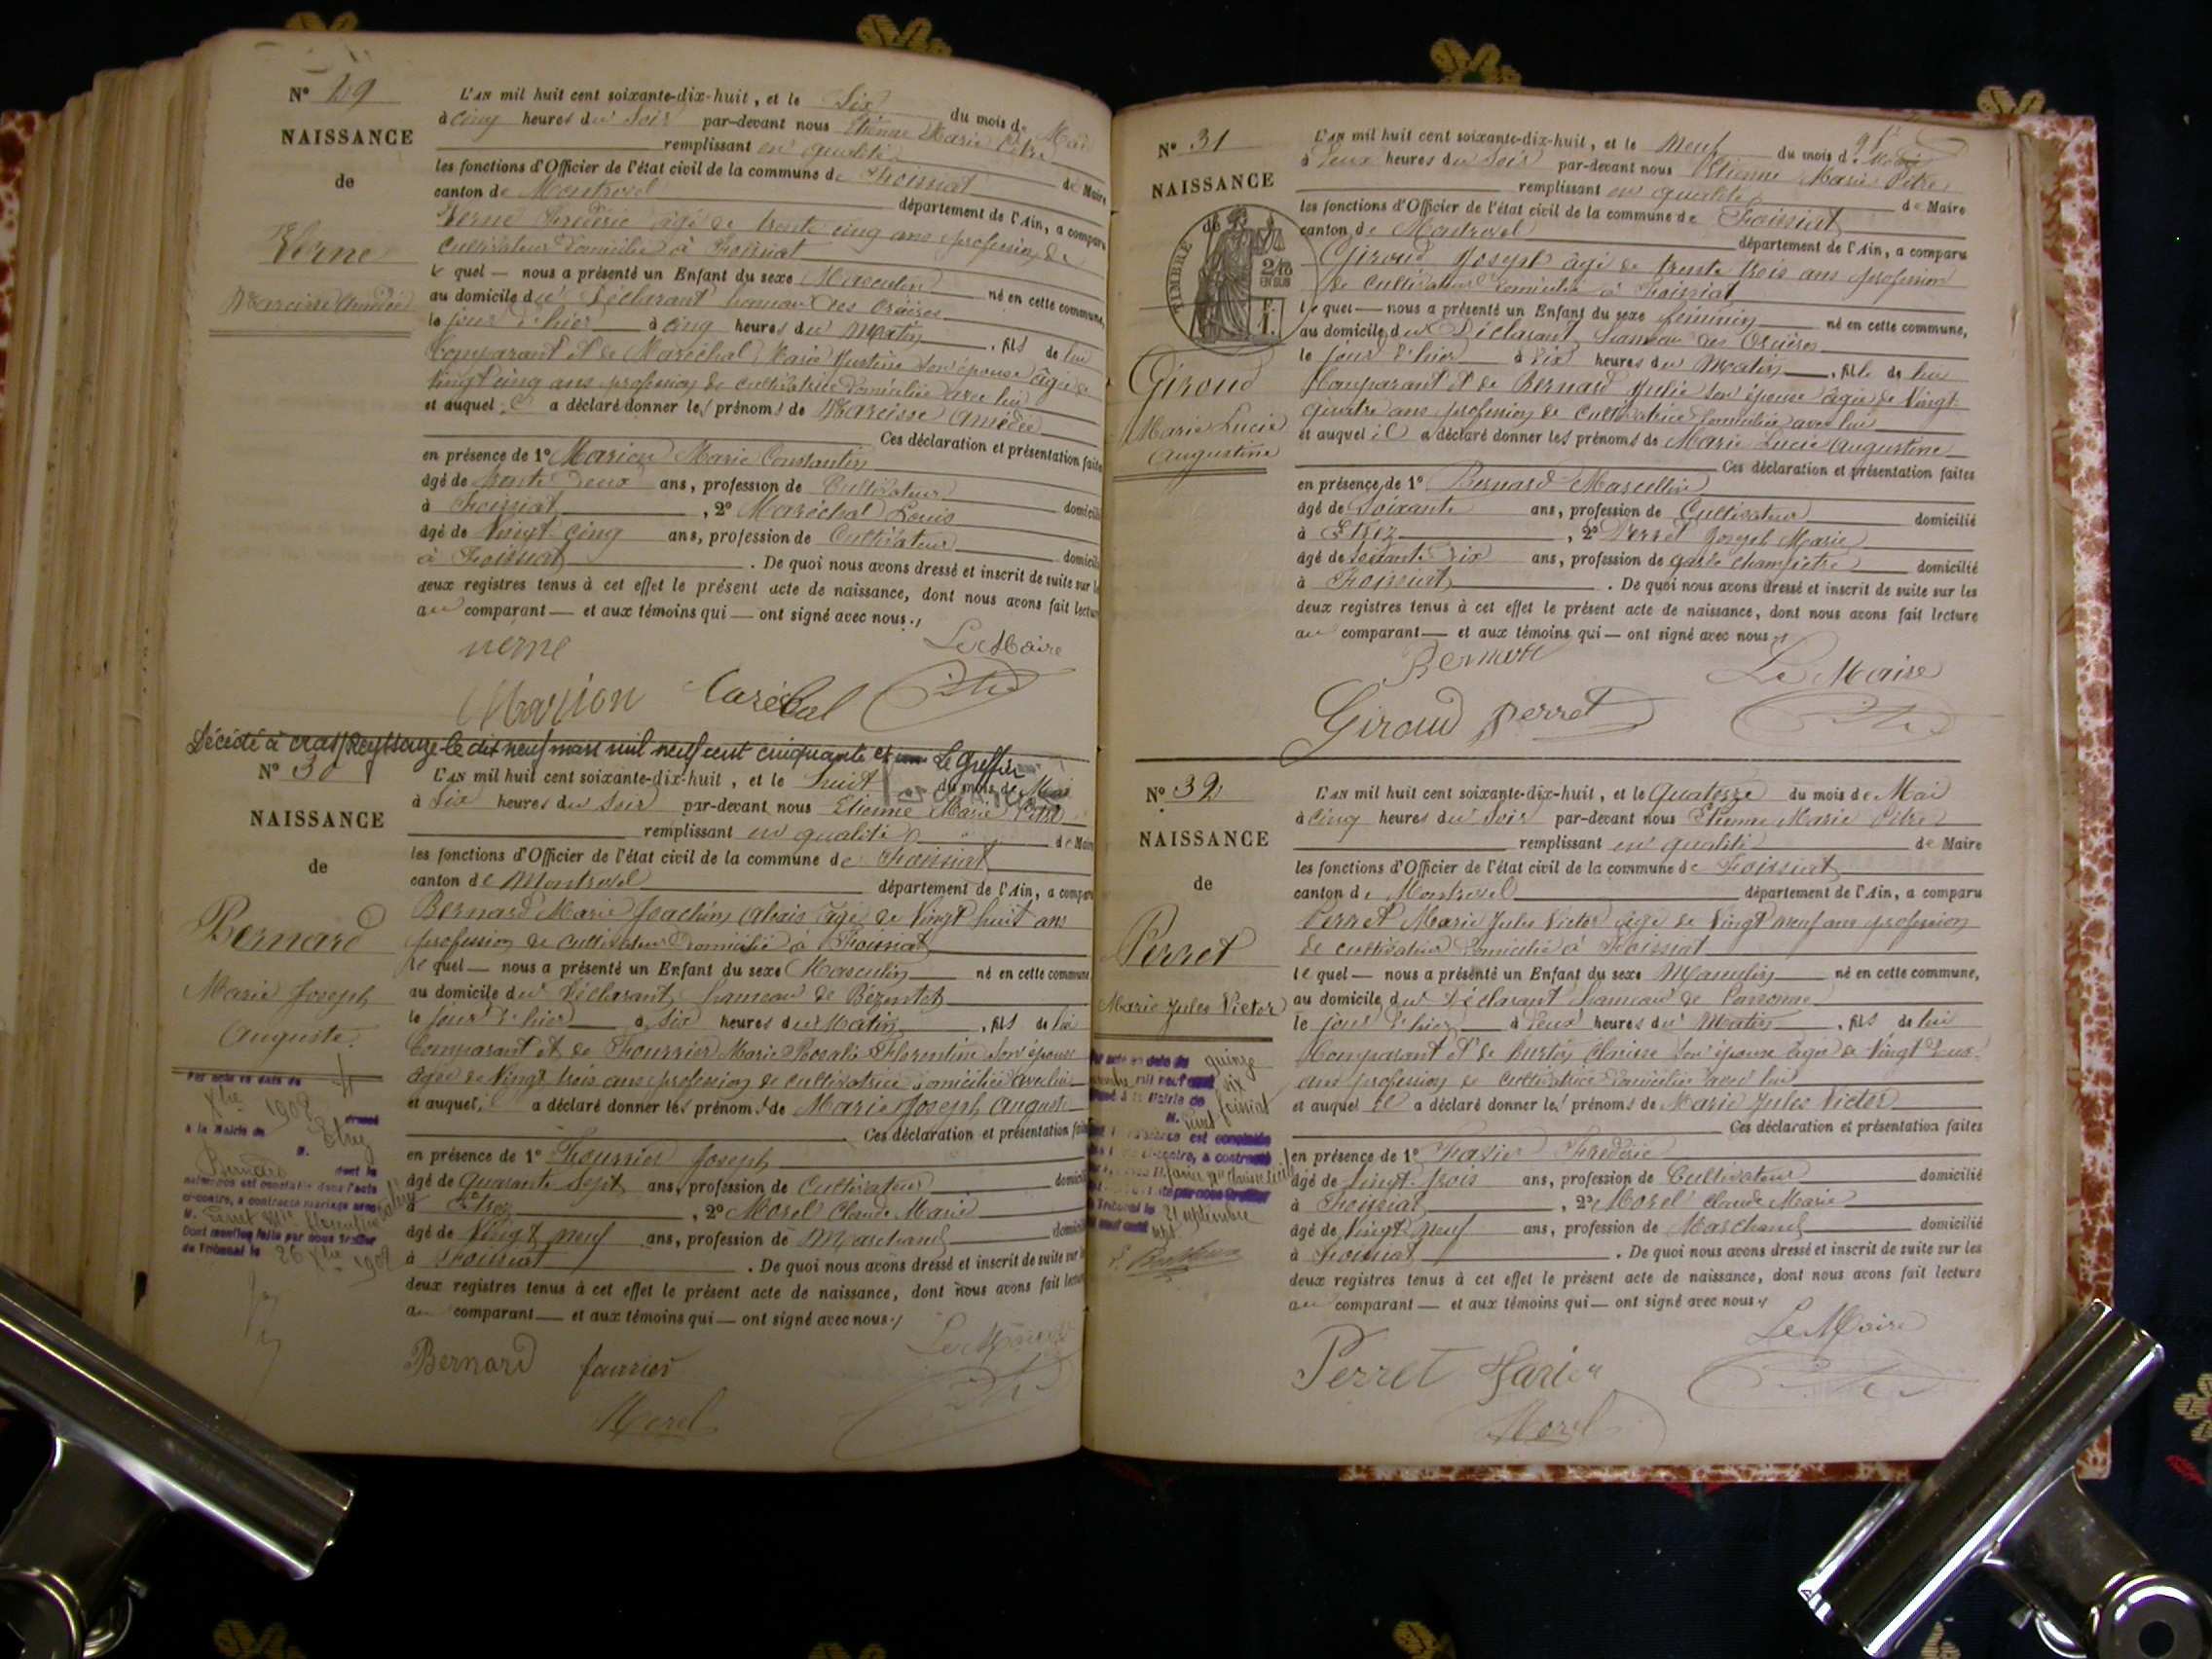 N° 29
NAISSANCE
de
Verne
Narcisse Amédée
L'AN mil huit cent soixante-dix-huit, et le Six du mois de Mai
à cinq heures du Soir par-devant nous Etienne Marie Pitre
remplissant en qualité de Maire
les fonctions d'Officier de l'état civil de la commune de Foissiat
canton de Montrevel département de l'Ain, a comparu
Verne Frédéric âgé de trente cinq ans profession de
cultivateur domicilié à Foissiat
le quel — nous a présenté un Enfant du sexe Masculin né en cette commune,
au domicile du Déclarant hameau des Orcières
le jour d'hier à cinq heures du Matin, fils de lui
Comparant et de Maréchal Marie Justine son épouse âgée de
vingt cinq ans profession de cultivatrice domiciliée avec lui
et auquel a déclaré donner les prénoms de Narcisse Amédée
Ces déclaration et présentation faites
en présence de 1° Marion Marie Constantin
âgé de trente deux ans, profession de Cultivateur domicilié
à Foissiat, 2° Maréchal Louis
âgé de Vingt cinq ans, profession de Cultivateur domicilié
à Foissiat. De quoi nous avons dressé et inscrit de suite sur les
deux registres tenus à cet effet le présent acte de naissance, dont nous avons fait lecture
au comparant — et aux témoins qui — ont signé avec nous.
verne Le Maire
Marion Maréchal Pitre
Décédé à Cras/Reyssouze le dix neuf mars mil neuf cent cinquante et un Le Greffier
N° 30
NAISSANCE
de
Bernard
Marie Joseph
Auguste
Par acte en date du
Xbre 1902 dressé
à la Mairie de Etrez
M.
Bernard dont la
naissance est constatée dans l'acte
ci-contre, a contracté mariage avec
M. Perret Mie Florentine
Dont mention faite par nous Greffier
du Tribunal le 26 Xbre 1902
L'AN mil huit cent soixante-dix-huit, et le huit du mois de Mai
à Six heures du Soir par-devant nous Etienne Marie Pitre
remplissant en qualité de Maire
les fonctions d'Officier de l'état civil de la commune de Foissiat
canton de Montrevel département de l'Ain, a comparu
Bernard Marie Joachim Alexis âgé de Vingt huit ans
profession de cultivateur domicilié à Foissiat
le quel — nous a présenté un Enfant du sexe Masculin né en cette commune
au domicile du Déclarant hameau de Bézentet
le jour d'hier à six heures du Matin, fils de lui
Comparant et de Fourrier Marie Rosalie Florentine son épouse
âgée de Vingt trois ans profession de cultivatrice domiciliée avec lui
et auquel a déclaré donner les prénoms de Marie Joseph Auguste
Ces déclaration et présentation faites
en présence de 1° Fourrier Joseph
âgé de Quarante Sept ans, profession de Cultivateur domicilié
à Etrez, 2° Morel Claude Marie
âgé de Vingt neuf ans, profession de Marchand domicilié
à Foissiat. De quoi nous avons dressé et inscrit de suite sur les
deux registres tenus à cet effet le présent acte de naissance, dont nous avons fait lecture
au comparant — et aux témoins qui — ont signé avec nous.
Bernard fourrier Le Maire
Morel Pitre
N° 31
NAISSANCE
de
TIMBRE
2/10 EN SUS
Giroud
Marie Lucie
Augustine
L'AN mil huit cent soixante-dix-huit, et le Neuf du mois de Mai
à Deux heures du Soir par-devant nous Etienne Marie Pitre
remplissant en qualité de Maire
les fonctions d'Officier de l'état civil de la commune de Foissiat
canton de Montrevel département de l'Ain, a comparu
Giroud Joseph âgé de trente trois ans profession
de cultivateur domicilié à Foissiat
le quel — nous a présenté un Enfant du sexe féminin né en cette commune,
au domicile du Déclarant hameau des Orcières
le jour d'hier à dix heures du Matin, fille de lui
Comparant et de Bernard Julie son épouse âgée de Vingt
quatre ans profession de cultivatrice domiciliée avec lui
et auquel il a déclaré donner les prénoms de Marie Lucie Augustine
Ces déclaration et présentation faites
en présence de 1° Bernard Marcellin
âgé de Soixante ans, profession de Cultivateur domicilié
à Etrez, 2° Perret Joseph Marie
âgé de Soixante dix ans, profession de garde champêtre domicilié
à Foissiat. De quoi nous avons dressé et inscrit de suite sur les
deux registres tenus à cet effet le présent acte de naissance, dont nous avons fait lecture
au comparant — et aux témoins qui — ont signé avec nous.
Bernard Le Maire
Giroud Perret Pitre
N° 32
NAISSANCE
de
Perret
Marie Jules Victor
Par acte en date du quinze
mil neuf cent six
à la Mairie de Foissiat
M. Perret
est constatée
ci-contre, a contracté
Tribunal le 21 septembre
L'AN mil huit cent soixante-dix-huit, et le Quatorze du mois de Mai
à cinq heures du Soir par-devant nous Etienne Marie Pitre
remplissant en qualité de Maire
les fonctions d'Officier de l'état civil de la commune de Foissiat
canton de Montrevel département de l'Ain, a comparu
Perret Marie Jules Victor âgé de Vingt neuf ans profession
de cultivateur domicilié à Foissiat
le quel — nous a présenté un Enfant du sexe Masculin né en cette commune,
au domicile du Déclarant hameau de
le jour d'hier à deux heures du Matin, fils de lui
Comparant et de Burtin Clarisse son épouse âgée de Vingt deux
ans profession de cultivatrice domiciliée avec lui
et auquel il a déclaré donner les prénoms de Marie Jules Victor
Ces déclaration et présentation faites
en présence de 1° Favier Frédéric
âgé de Vingt trois ans, profession de Cultivateur domicilié
à Foissiat, 2° Morel Claude Marie
âgé de Vingt neuf ans, profession de Marchand domicilié
à Foissiat. De quoi nous avons dressé et inscrit de suite sur les
deux registres tenus à cet effet le présent acte de naissance, dont nous avons fait lecture
au comparant — et aux témoins qui — ont signé avec nous.
Le Maire
Perret Favier Pitre
Morel